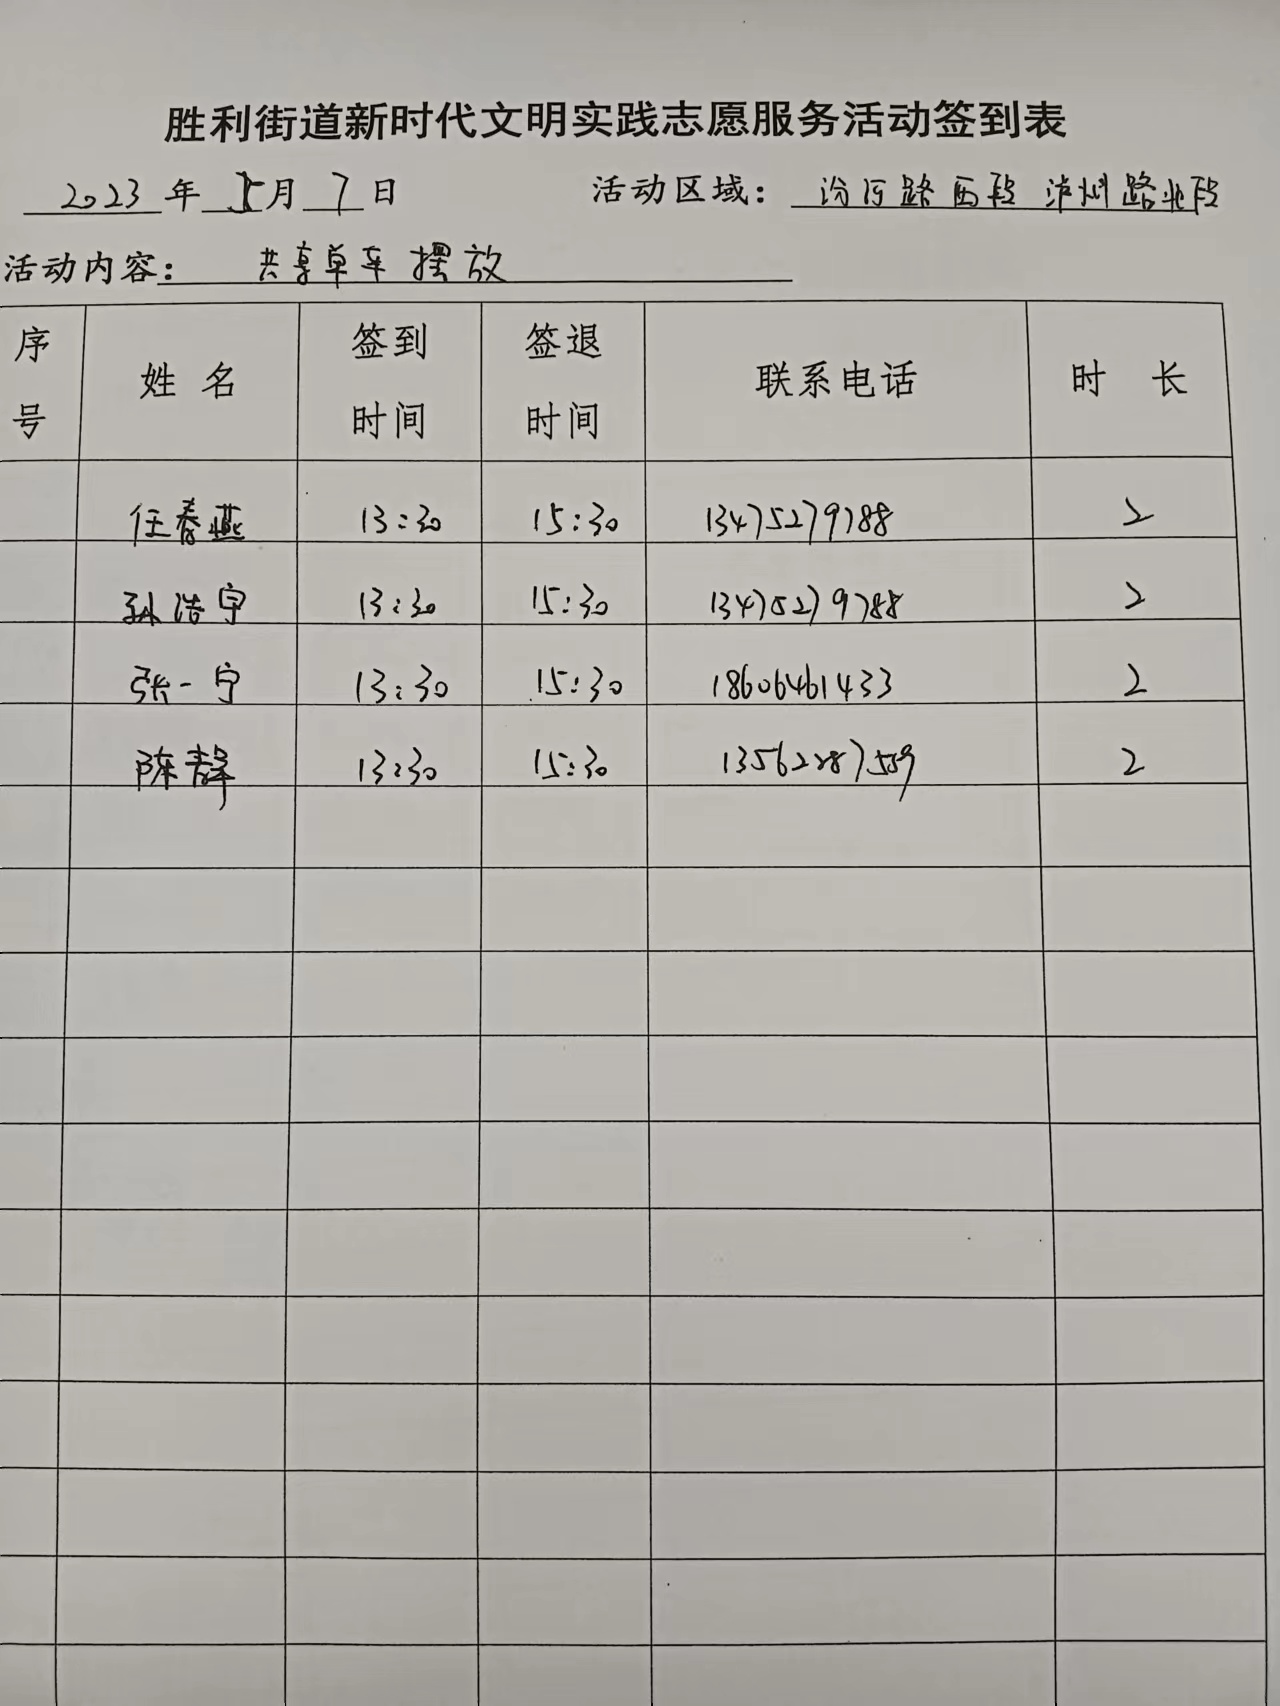 胜利街道新时代文明实践志愿服务活动签到表
2023年5月7日 活动区域：汾河路西段 泸州路北段
活动内容：共享单车摆放
序号 姓名 签到时间 签退时间 联系电话 时长
任春燕 13:30 15:30 13475279788 2
孙浩宇 13:30 15:30 13475279788 2
张一宁 13:30 15:30 18606461433 2
陈静 13:30 15:30 13562287559 2